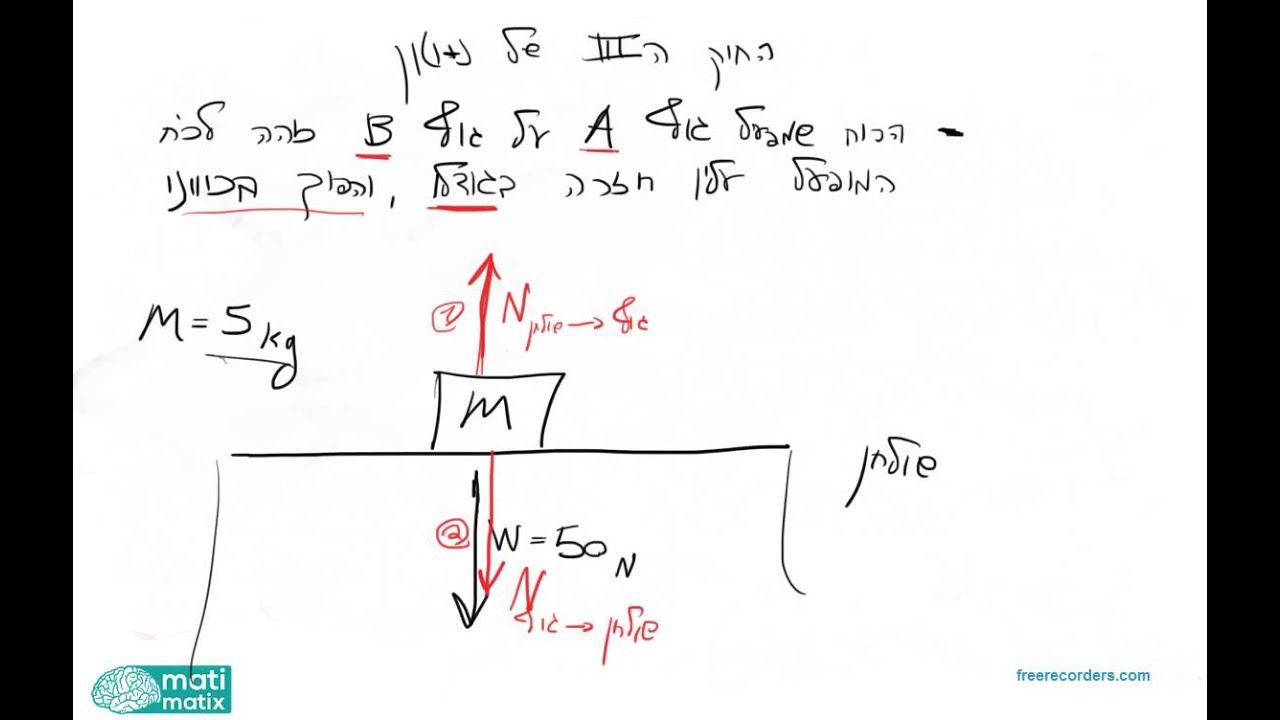 החוק ה III של ניוטון
- הכוח שמפעיל גוף A על גוף B זהה לכח
המופעל עליו חזרה בגודלו, והפוך בכיוונו
M = 5 kg
① N שולחן → גוף
M
שולחן
② W = 50 N
N גוף → שולחן
mati
matix
freerecorders.com